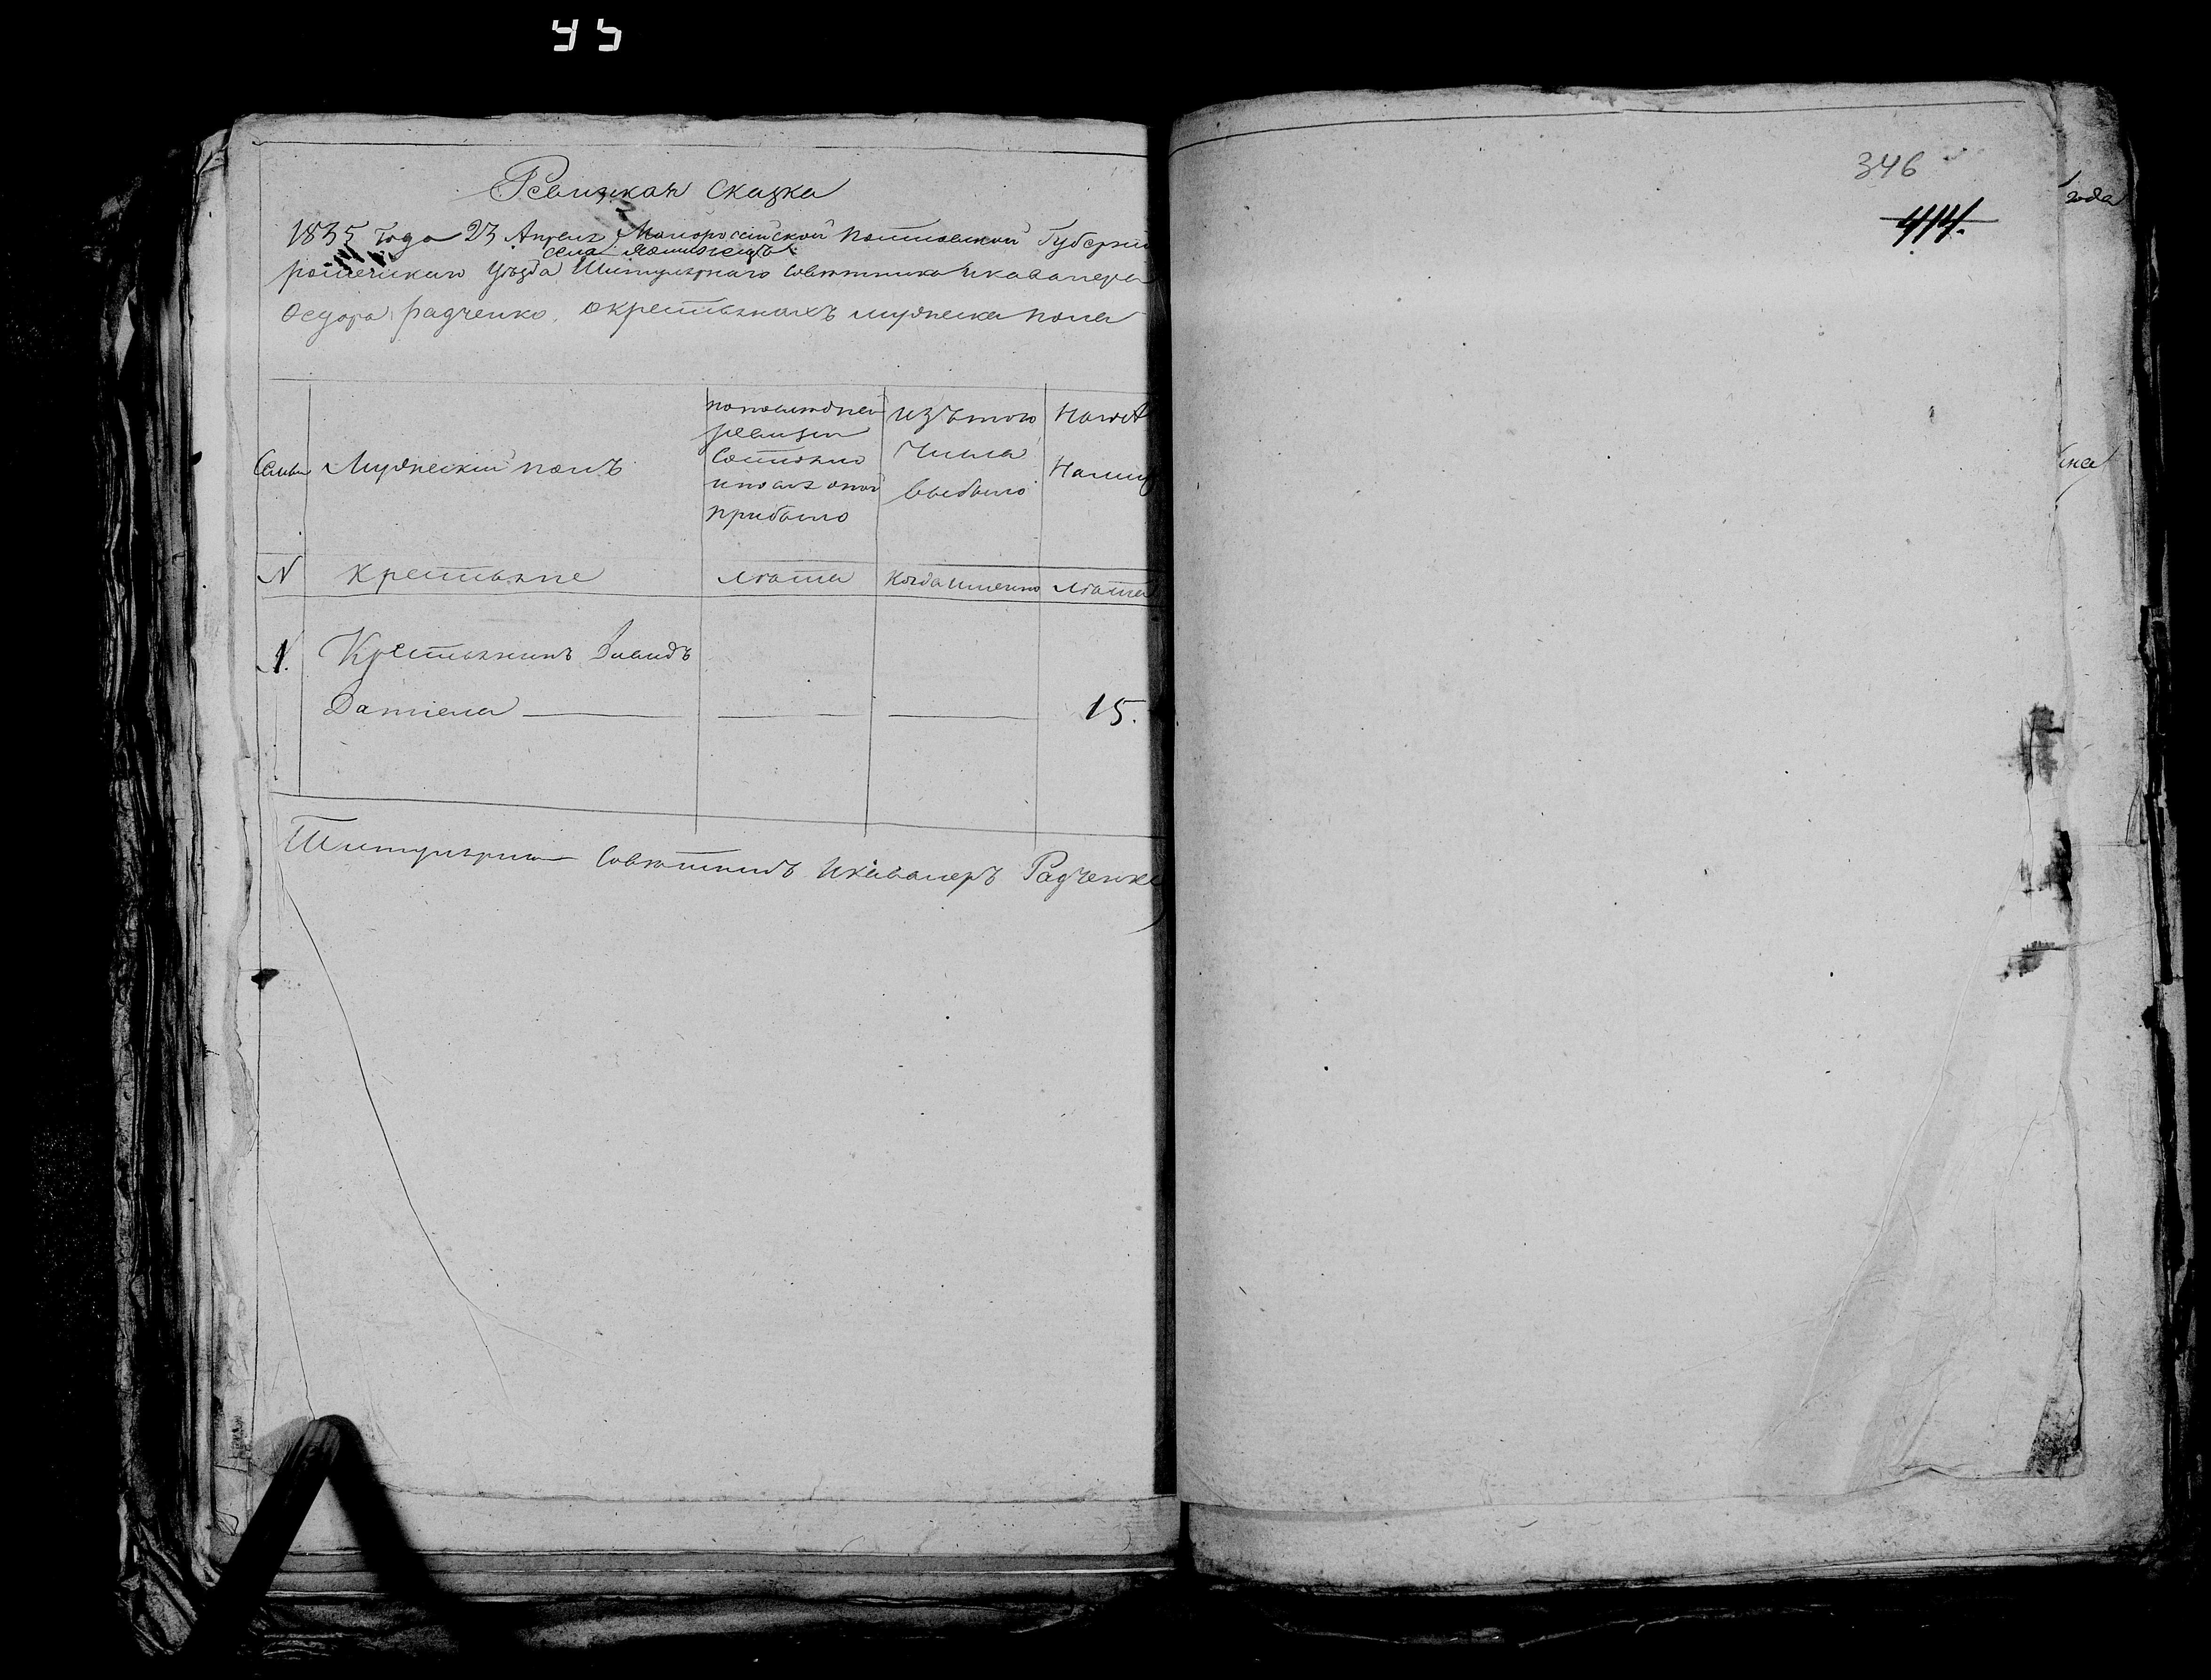 45
Ревизская сказка
1835 года 23 Апреля Малоросійской Полтавской Губерніи
села
роменскаго уезда Титулярнаго Советника икавалера
Федора радченко. окрестьянахъ мужеска пола
Семьи
Мужескій полъ
попоследней
ревизіи
Состояло
ипосле оной
прибыло
изътого
Числа
выбыло
Ныне
Налицо
N
крестьяне
лета
Когда именно
лета
1.
Крестьянинъ Давидъ
Данііела
15.
Титулярный Советникъ Икавалеръ Радченко
346
414.
года